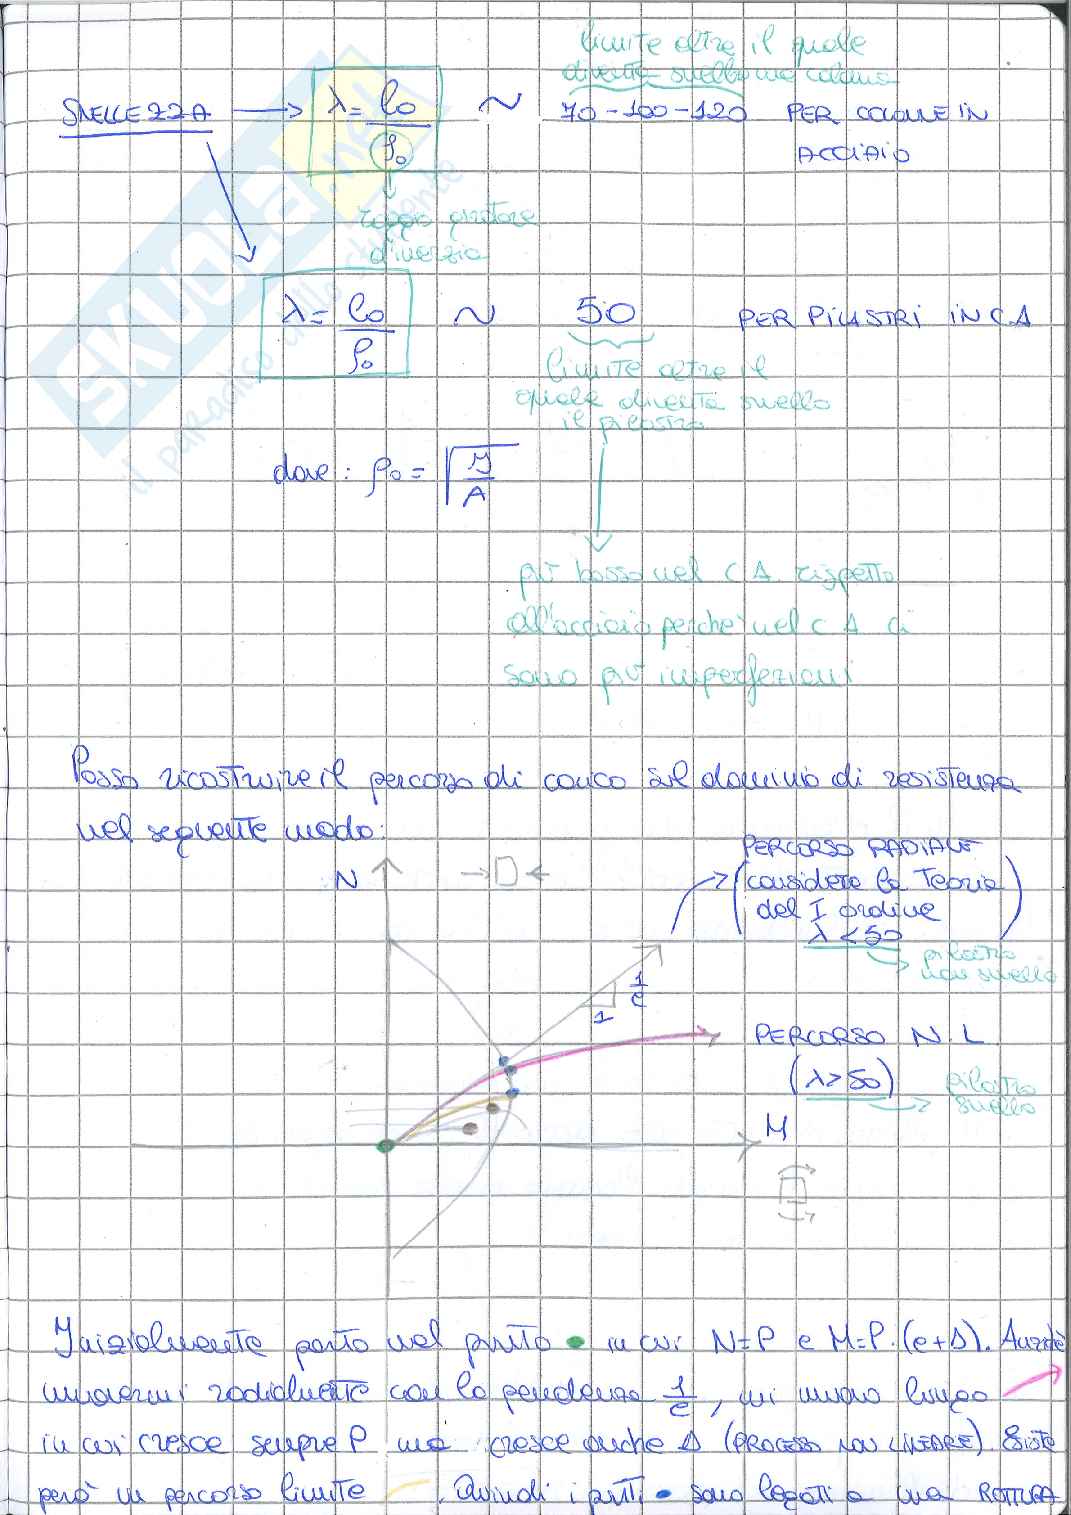 limite oltre il quale
diventa snella una colonna
SNELLEZZA → λ = l0/ρ0 ~ 70-100-120 PER COLONNE IN
ACCIAIO
raggio giratore
d'inerzia
λ = l0/ρ0 ~ 50 PER PILASTRI IN CA
limite oltre il
quale diventa snello
il pilastro
dove: ρ0 = √(J/A)
più basso nel CA rispetto
all'acciaio perche' nel CA ci
sono più imperfezioni
Posso ricostruire il percorso di carico sul dominio di resistenza
nel seguente modo:
PERCORSO RADIALE
(considero la Teoria
del I ordine
λ < 50)
pilastro
non snello
N
1/e
1
PERCORSO N.L.
(λ > 50)
pilastro
snello
M
Inizialmente parto nel punto • in cui N=P e M=P·(e+Δ). Anzichè
muovermi radialmente con la pendenza 1/e, mi muovo lungo →
in cui cresce sempre P ma cresce anche Δ (PROCESSO NON LINEARE). Esiste
però un percorso limite . Quindi i punti • sono legati a una ROTTURA
SKUOLA.net
il paradiso dello studente